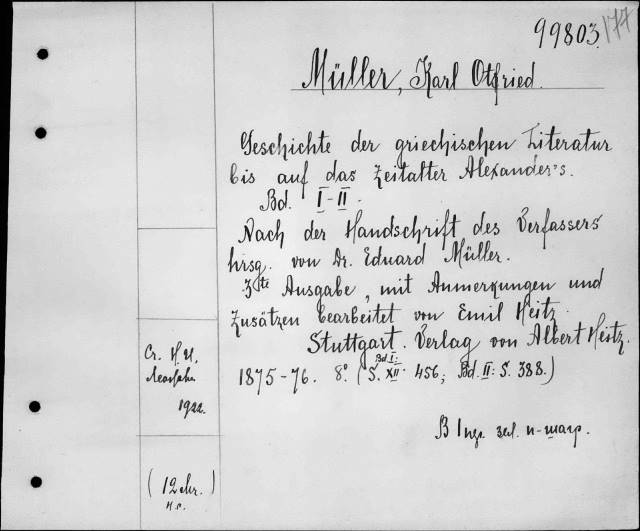 99803.
177
Müller, Karl Otfried.
Geschichte der griechischen Literatur
bis auf das Zeitalter Alexander's.
Bd. I-II.
Nach der Handschrift des Verfassers
hrsg. von Dr. Eduard Müller.
3te Ausgabe, mit Anmerkungen und
Zusätzen bearbeitet von Emil Heitz.
Stuttgart. Verlag von Albert Heitz.
1875-76. 8° (Bd. I: S. XII. 456; Bd. II: S. 388.)
1922.